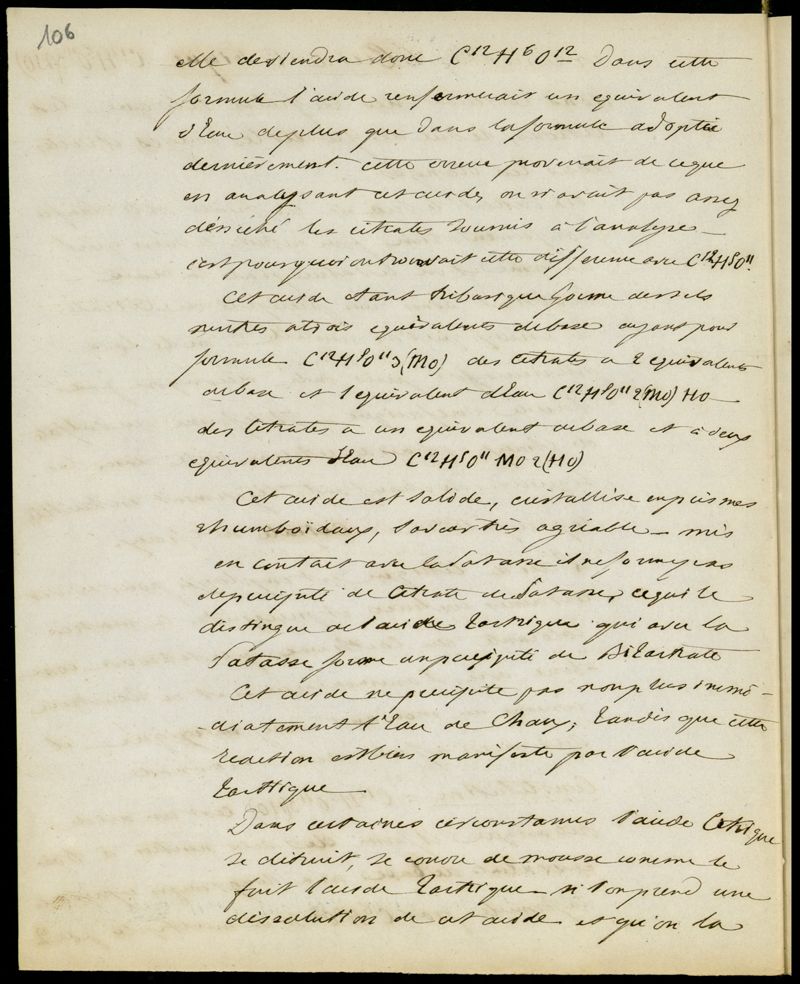 106
elle deviendra donc C12H6O12 Dans cette
formule l'acide renfermerait un equivalent
d'Eau deplus que dans laformule adoptée
dernièrement. cette erreur provenait de ceque
en analysant cet acide, on n'avait pas assez
désséché les citrates soumis à l'analyse –
c'est pourquoi on trouvait cette difference avec C12H5O11.
Cet acide étant tribasique forme des sels
neutres a trois equivalents debase ayant pour
formule C12H5O11 3(MO) des Citrates a 2 equivalents
debase et 1 equivalent d'Eau C12H5O11 2(MO) HO –
des Citrates a un equivalent debase et à deux
equivalents d'Eau C12H5O11 MO 2(HO)
Cet acide est solide, cristallise en prismes
rhumboïdaux, saveur très agréable – mis
en contact avec la Potasse il ne forme pas
deprécipité de Citrate de Potasse, cequi le
distingue de l'acide Tartrique qui avec la
Potasse forme unprécipité de BiTartrate
Cet acide ne précipite pas nonplus immé-
diatement l'Eau de Chaux; tandis que cette
reaction estbien manifeste par l'acide
Tartrique
Dans certaines circonstances l'acide Citrique
se détruit, se couvre de mousse comme le
fait l'acide Tartrique – si l'on prend une
dissolution de cet acide et qu'on la